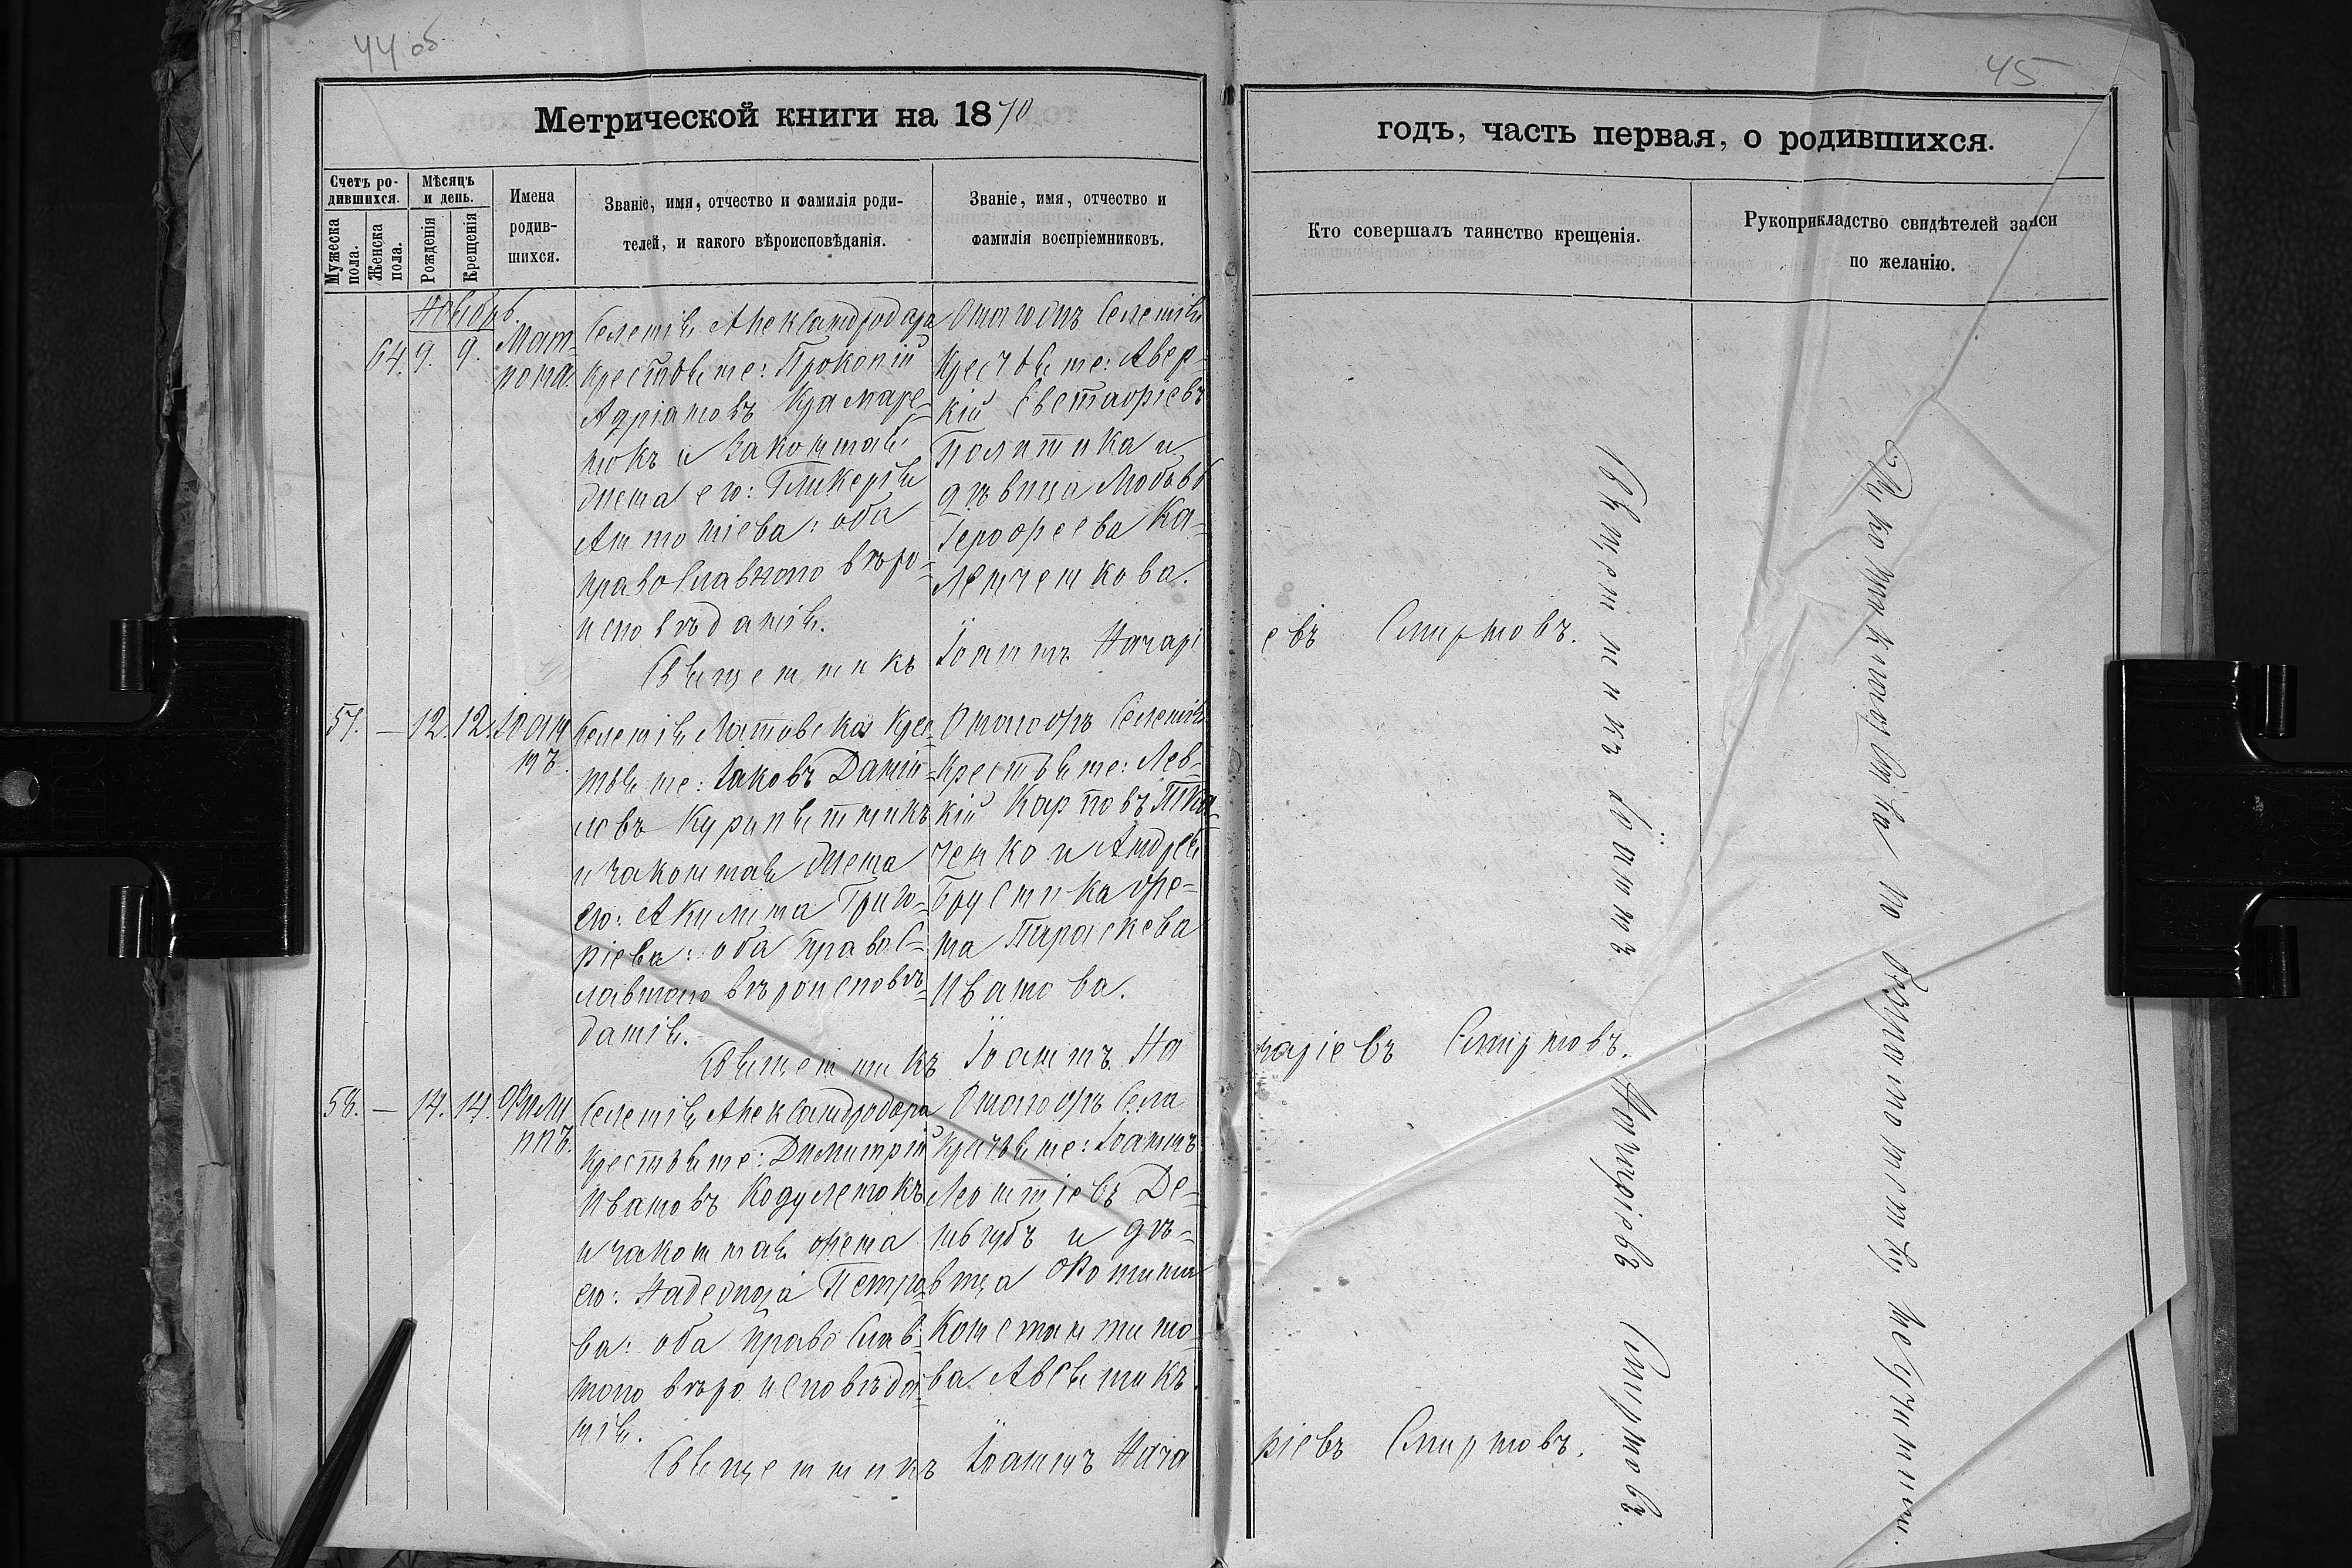 44 об
45
Метрической книги на 1870
годъ, часть первая, о родившихся.
Счетъ ро-
дившихся.
Мужеска
пола.
Женска
пола.
Мѣсяцъ
и день.
Рожденія
Крещенія
Имена
родив-
шихся.
Званіе, имя, отчество и фамилія роди-
телей, и какого вѣроисповѣданія.
Званіе, имя, отчество и
фамилія воспріемниковъ.
Кто совершалъ таинство крещенія.
Рукоприкладство свидѣтелей записи
по желанію.
Ноябрь.
64. 9. 9.
Мат-
рона.
Селенія Александродара
крестьяне: Прокопій
Адріановъ Крамаре-
нокъ и законная
жена его: Гликерія
Антоніева: оба
православного вѣро-
исповѣданія.
Тогожъ Селенія
крестьяне: Авер-
кій
Политика и
дѣвица Любовь
Ка-
ленченкова.
Священникъ Іоаннъ Назарі
евъ Смирновъ.
57. — 12. 12.
Іоан
нъ.
Селенія Латовска крес
тьяне: Іаковъ Даніи-
ловъ Курипятникъ
и законная жена
его: Акилина Григо-
ріева: оба правос-
лавного вѣроисповѣ-
данія.
Селенія
крестьяне: Лев-
кій Карповъ Тка
ченко и Андрея
Брусника же-
на Параскева
Иванова.
Священникъ Іоаннъ На
заріевъ Смирновъ.
58. — 14. 14.
Фили
ппъ.
Селенія Александродара
крестьяне: Димитрій
Ивановъ Кодуленокъ
и законная жена
его: Надежда Петро
ва: оба Православ-
ного вѣроисповѣда-
нія.
Села
крестьяне: Іоаннъ
Леонтіевъ Де-
и дѣ-
вица Фотинія
Константино
ва
Священникъ Іоаннъ Наза
ріевъ Смирновъ.
Священникъ Іоаннъ Назаріевъ Смирновъ.
Рукоприкладства по безграмотству не учинили.